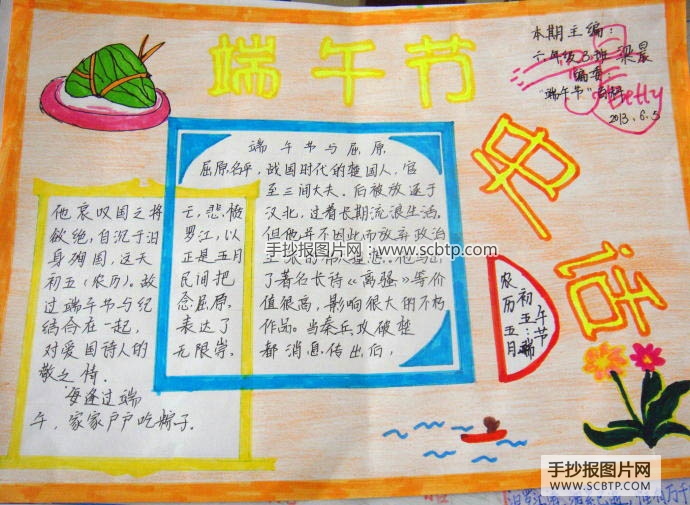 端午节
名话
本期主编：
六年级3班 梁晨
编者：
"端午节"
Betty
2013.6.5
端午节与屈原
屈原名平，战国时代的楚国人，官
至三闾大夫。后被放逐于
汉北，过着长期流浪生活。
但他并不因此而放弃政治
了著名长诗《离骚》等价
值很高，影响很大的不朽
作品。当秦兵攻破楚
都消息传出伯，
他哀叹国之将亡，悲愤
欲绝，自沉于汨罗江，以
身殉国，这天正是五月
初五（农历）。故民间把
过端午节与纪念屈原，
结合在一起，表达了
对爱国诗人的无限崇，
敬之情。
每逢过端
午，家家户户吃粽子。
农历五月
初五：端
午节
手抄报图片网:www.scbtp.com
手抄报图片网
WWW.SCBTP.COM